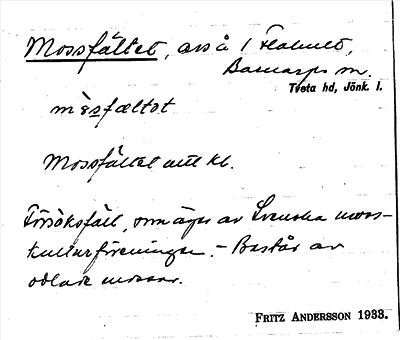 Mossfältet, avs å 1 Flahult,
Barnarps sn.
Tveta hd, Jönk. l.
mòsfæltət
Mossfältet utt kl.
Försöksfält, som äges av Svenska moss-
kulturföreningen. - Består av
odlade mossar.
FRITZ ANDERSSON 1933.